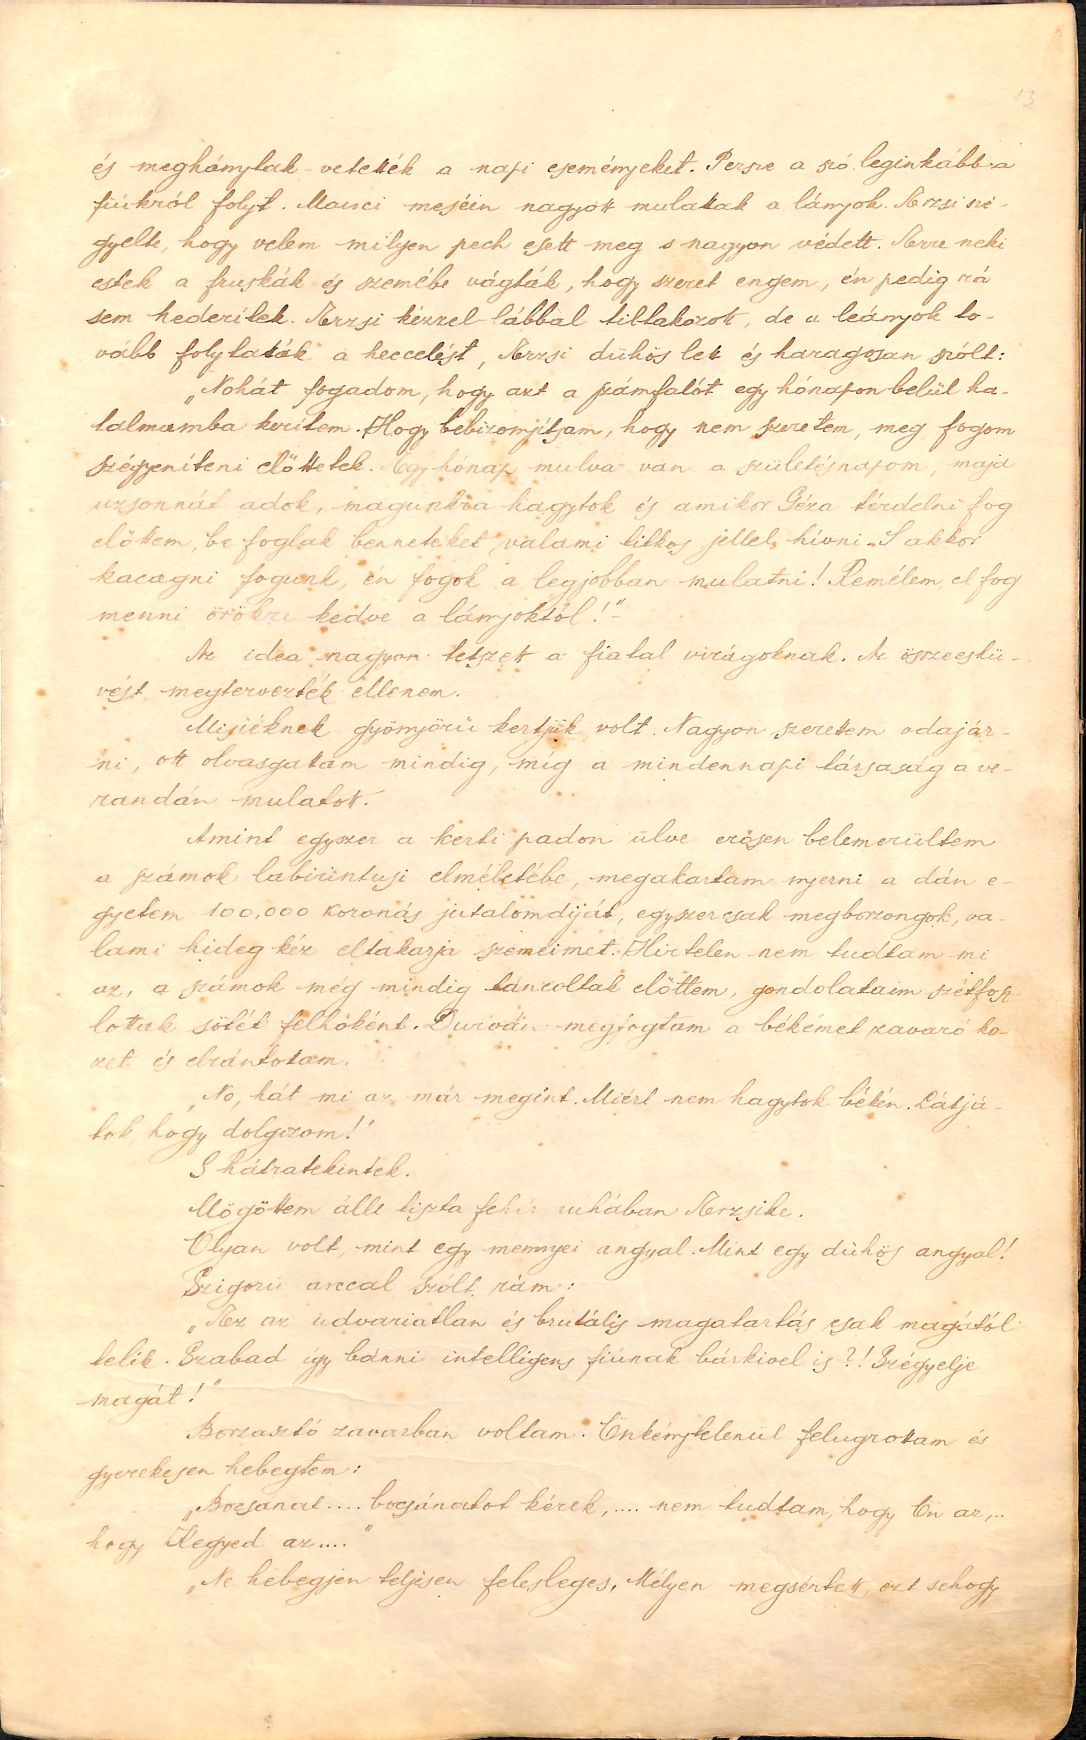 13
és meghánytak-vetették a napi eseményeket. Persze a szó leginkább a
fiúkról folyt. Manci meséin nagyott mulattak a lányok. Erzsi né-
gyelte, hogy velem milyen pech esett meg s nagyon védett. Erre neki
estek a fruskák és szemébe vágták, hogy szeret engem, én pedig rá
sem hederítek. Erzsi kézzel-lábbal tiltakozott, de a leányok to-
vább folytatták a heccelést, Erzsi dühös lett és haragosan szólt:
„Nohát fogadom, hogy azt a számfalót egy hónapon belül ha-
talmamba kerítem. Hogy bebizonyítsam, hogy nem szeretem, meg fogom
szégyeníteni előttetek. Egy hónap mulva van a születésnapom, majd
uzsonnát adok, magunkra hagytok és amikor Géza térdelni fog
előttem, be foglak benneteket valami titkos jellel hívni. S akkor
kacagni fogunk, én fogok a legjobban mulatni! Remélem, el fog
menni örökre kedve a lányoktól!"-
Az idea nagyon tetszett a fiatal virágoknak. Az összeeskü-
vést megtervezték ellenem.
Misiéknek gyönyörü kertjük volt. Nagyon szerettem odajár-
ni, ott olvasgattam mindig, míg a mindennapi társaság a ve-
randán mulatott.
Amint egyszer a kerti padon ülve erősen belemerültem
a számok labirintusi elméletébe, megakartam nyerni a dán e-
gyetem 100,000 koronás jutalomdíját, egyszer csak megborzongok, va-
lami hideg kéz eltakarja szemeimet. Hirtelen nem tudtam mi
az, a számok még mindig táncoltak előttem, gondolataim szétfosz
lottak sötét felhőként. Durván megfogtam a békémet zavaró ke-
zet és elrántottam.
„No, hát mi az már megint. Miért nem hagytok békén. Látjá-
tok, hogy dolgozom!"
S hátratekintek.
Mögöttem állt tiszta fehér ruhában Erzsike.
Olyan volt, mint egy mennyei angyal. Mint egy dühös angyal!
Szigorú arccal szólt rám:
„Ez az udvariatlan és brutális magatartás csak magától
telik. Szabad így bánni intelligens fiúnak bárkivel is?! Szégyelje
magát!"
Borzasztó zavarban voltam. Önkénytelenül felugrottam és
gyerekesen hebegtem:
„Bocsánat.... bocsánatot kérek,.... nem tudtam, hogy Ön az,..
hogy Kegyed az...."
„Ne hebegjen teljesen felesleges, Mélyen megsértett, ezt sehogy